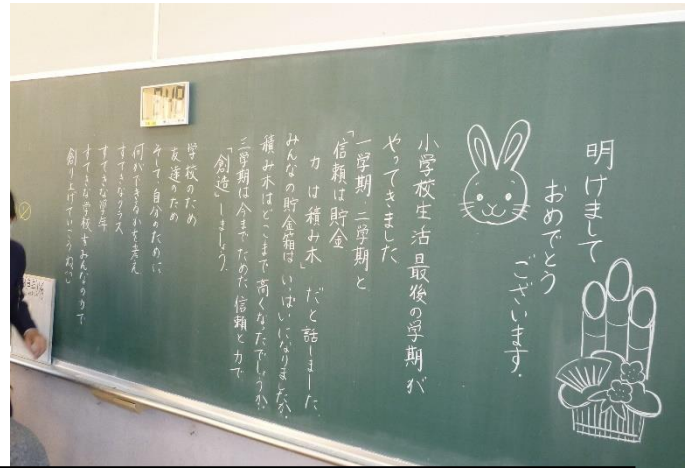 明けまして
おめでとう
ございます.
小学校生活最後の学期が
やってきました
一学期.二学期と
「信頼は貯金
力は積み木」だと話しました.
みんなの貯金箱はいっぱいになりましたか.
積み木はどこまで高くなったでしょうか.
三学期は今までためた信頼と力で
「創造」しましょう.
学校のため
友達のため
そして自分のために
何ができるかを考え
すてきなクラス
すてきな学年
すてきな学校をみんなの力で
創り上げていこうね